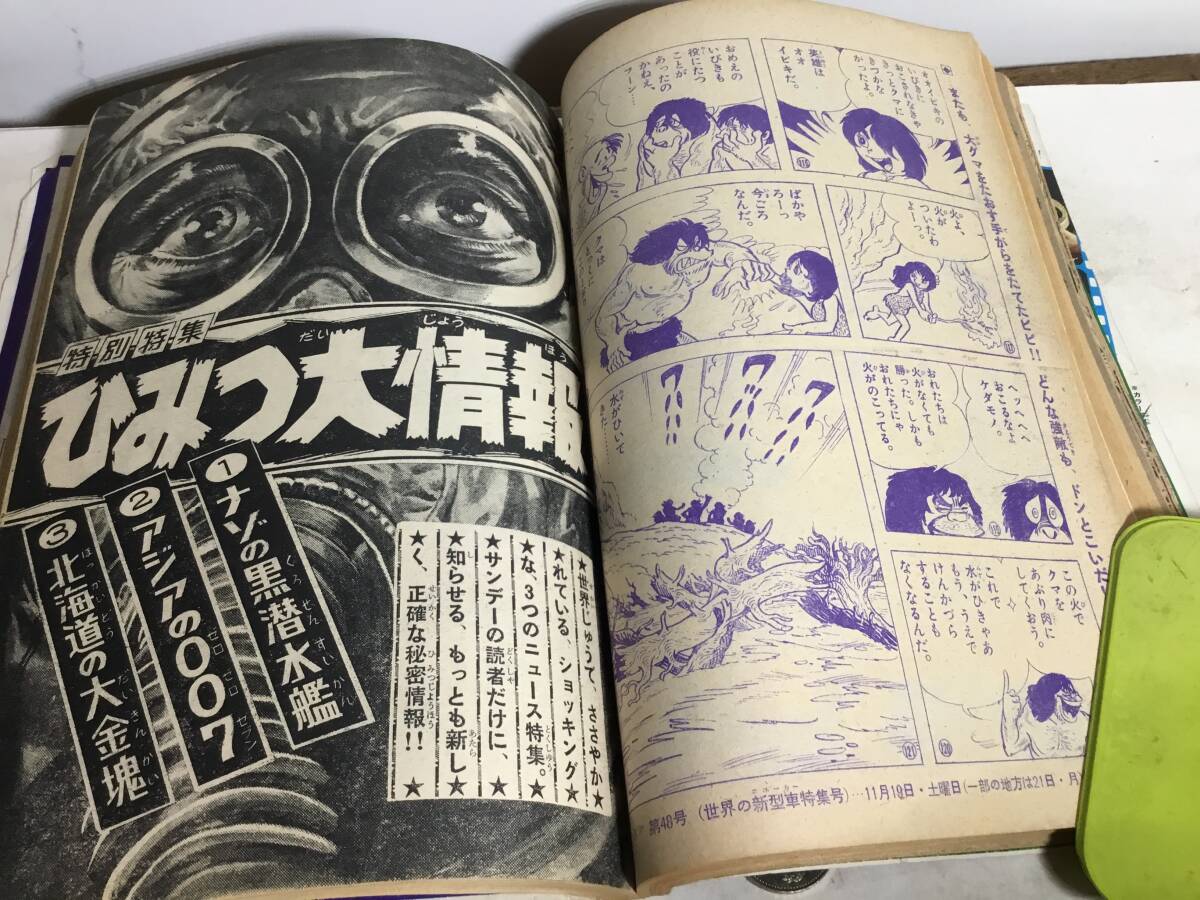 またも、大グマをたおす手がらをたてたピピ!!
どんな強敵も、ドンとこい
オオイビキの
いびきに
おこされなきゃ
きっとクマに
きづかな
かったよ。
英雄は
オオ
イビキだ。
おめえの
いびきも
役にたつ
ことが
あったの
かねえ。
フーン…
火よ、
火が
ついたわ
よーっ。
ばかや
ろーっ
今ごろ
なんだ。
クマは
ヘッヘヘヘ
おこるなよ
ケダモノ。
おれたちは
火がなくても
勝った。しかも
おれたちにゃ
火がのこってる。
水がひいて
きた……
ワッ
ワッ
ワッ
この火で
クマを
あぶり肉に
してくおう。
これで
水がひきゃあ
もう、うえで
けんかづら
することも
なくなるんだ。
116
117
119
120
121
第48号(世界の新型車特集号)…11月19日・土曜日(一部の地方は21日・月)
特別特集
ひみつ大情報
だい じょう ほう
❶ナゾの黒潜水艦
くろ せん すい かん
❷アジアの007
ゼロ ゼロ セブン
❸北海道の大金塊
ほっかいどう だい きん かい
★世界じゅうで、ささやか★
★れている、ショッキング★
★な、3つのニュース特集。★
★サンデーの読者だけに、★
★知らせる、もっとも新し★
★く、正確な秘密情報!!★